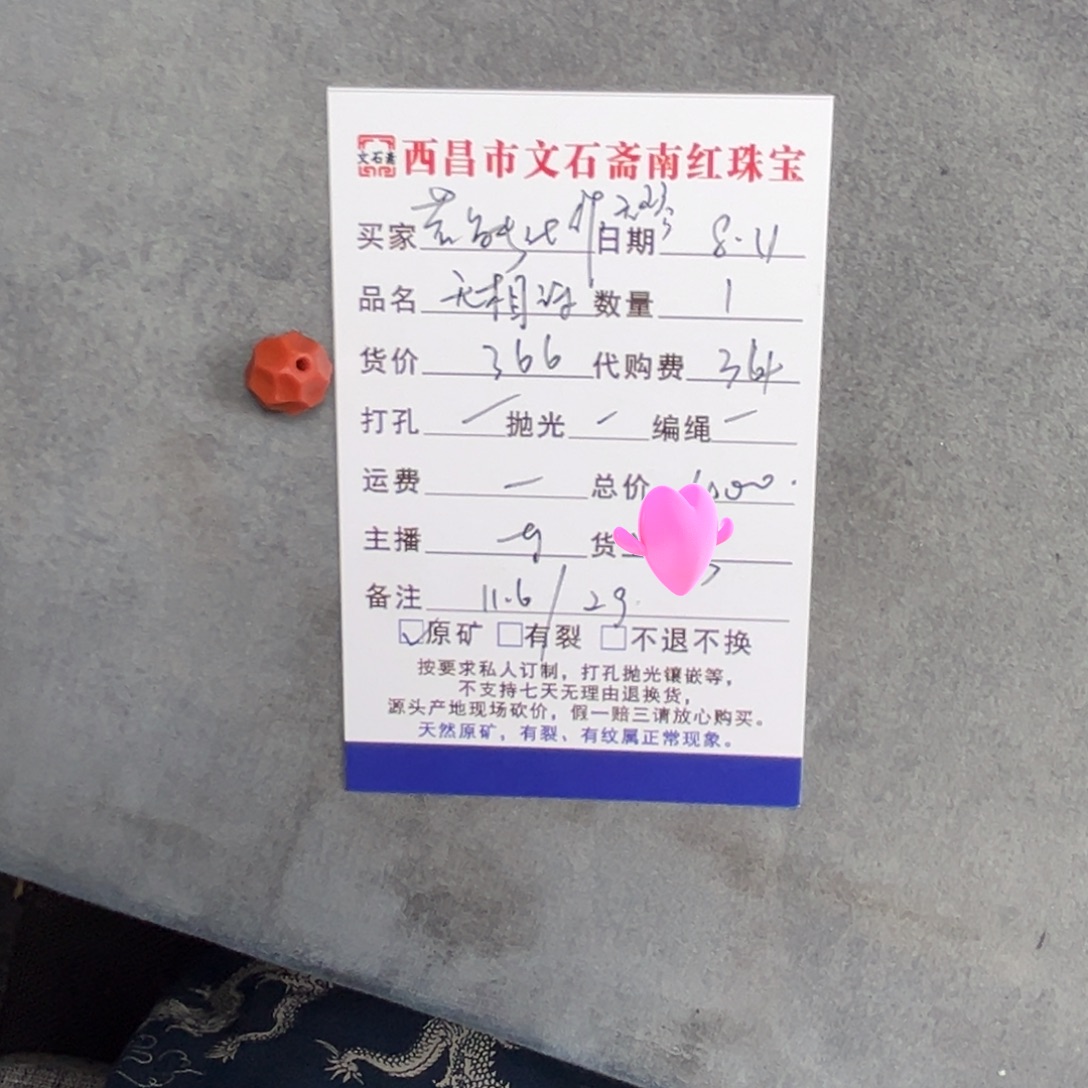 文石斋 西昌市文石斋南红珠宝
买家 日期 8.11
品名 无相 数量 1
货价 366 代购费 364
打孔 — 抛光 — 编绳 —
运费 — 总价
主播 货
备注 11.6 / 2g.
☑原矿 □有裂 □不退不换
按要求私人订制，打孔抛光镶嵌等，
不支持七天无理由退换货，
源头产地现场砍价，假一赔三请放心购买。
天然原矿，有裂、有纹属正常现象。